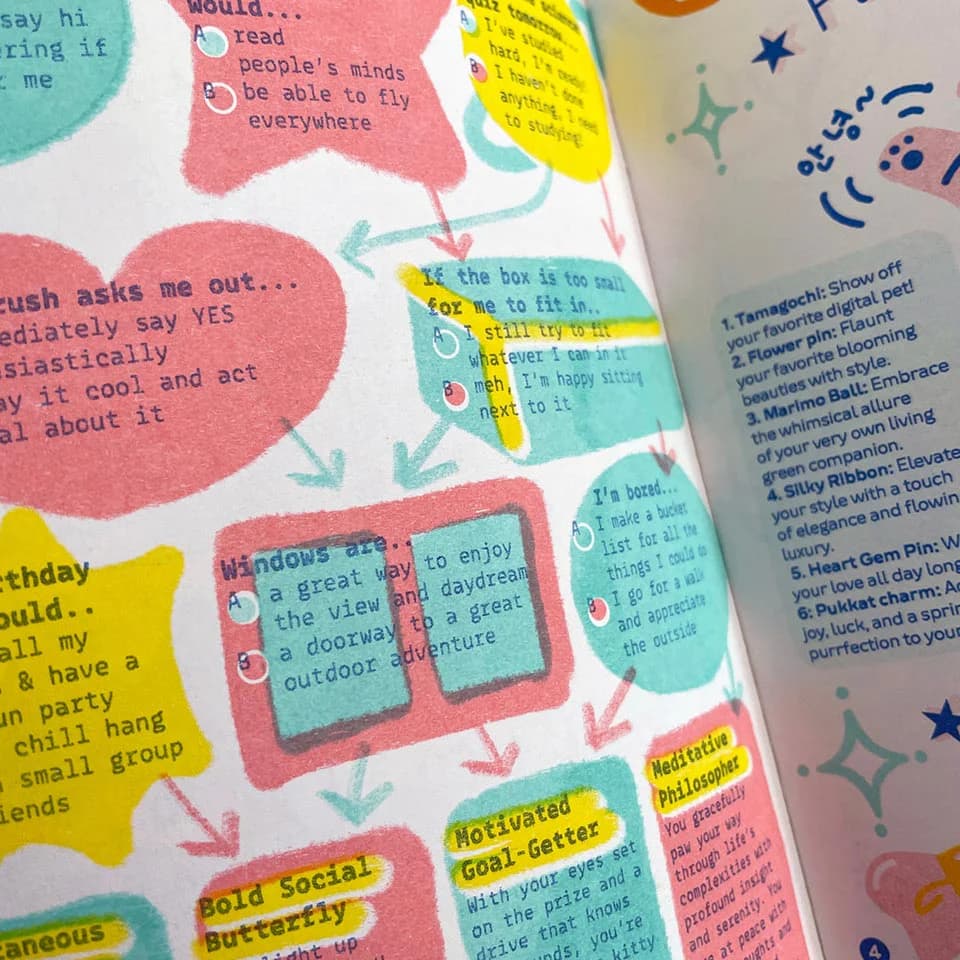 say hi
ering if
me
would...
A read
people's minds
B be able to fly
everywhere
quiz tomorrow...
A I've studied
hard, I'm ready!
B I haven't done
anything, I need
to studying!
rush asks me out...
ediately say YES
siastically
ay it cool and act
al about it
If the box is too small
for me to fit in..
A I still try to fit
whatever I can in it
B meh, I'm happy sitting
next to it
rthday
ould..
all my
& have a
un party
chill hang
small group
iends
Windows are..
A a great way to enjoy
the view and daydream
B a doorway to a great
outdoor adventure
I'm bored...
A I make a bucket
list for all the
things I could do
B I go for a walk
and appreciate
the outside
taneous
Bold Social
Butterfly
ight up
Motivated
Goal-Getter
With your eyes set
on the prize and a
drive that knows
nds, you're
kitty
Meditative
Philosopher
You gracefully
paw your way
through life's
complexities with
profound insight
and serenity. You
are at peace with
thoughts and
안녕~
1. Tamagochi: Show off
your favorite digital pet!
2. Flower pin: Flaunt
your favorite blooming
beauties with style.
3. Marimo Ball: Embrace
the whimsical allure
of your very own living
green companion.
4. Silky Ribbon: Elevate
your style with a touch
of elegance and flowin
luxury.
5. Heart Gem Pin: W
your love all day long
6: Pukkat charm: Ad
joy, luck, and a sprin
purrfection to your
4